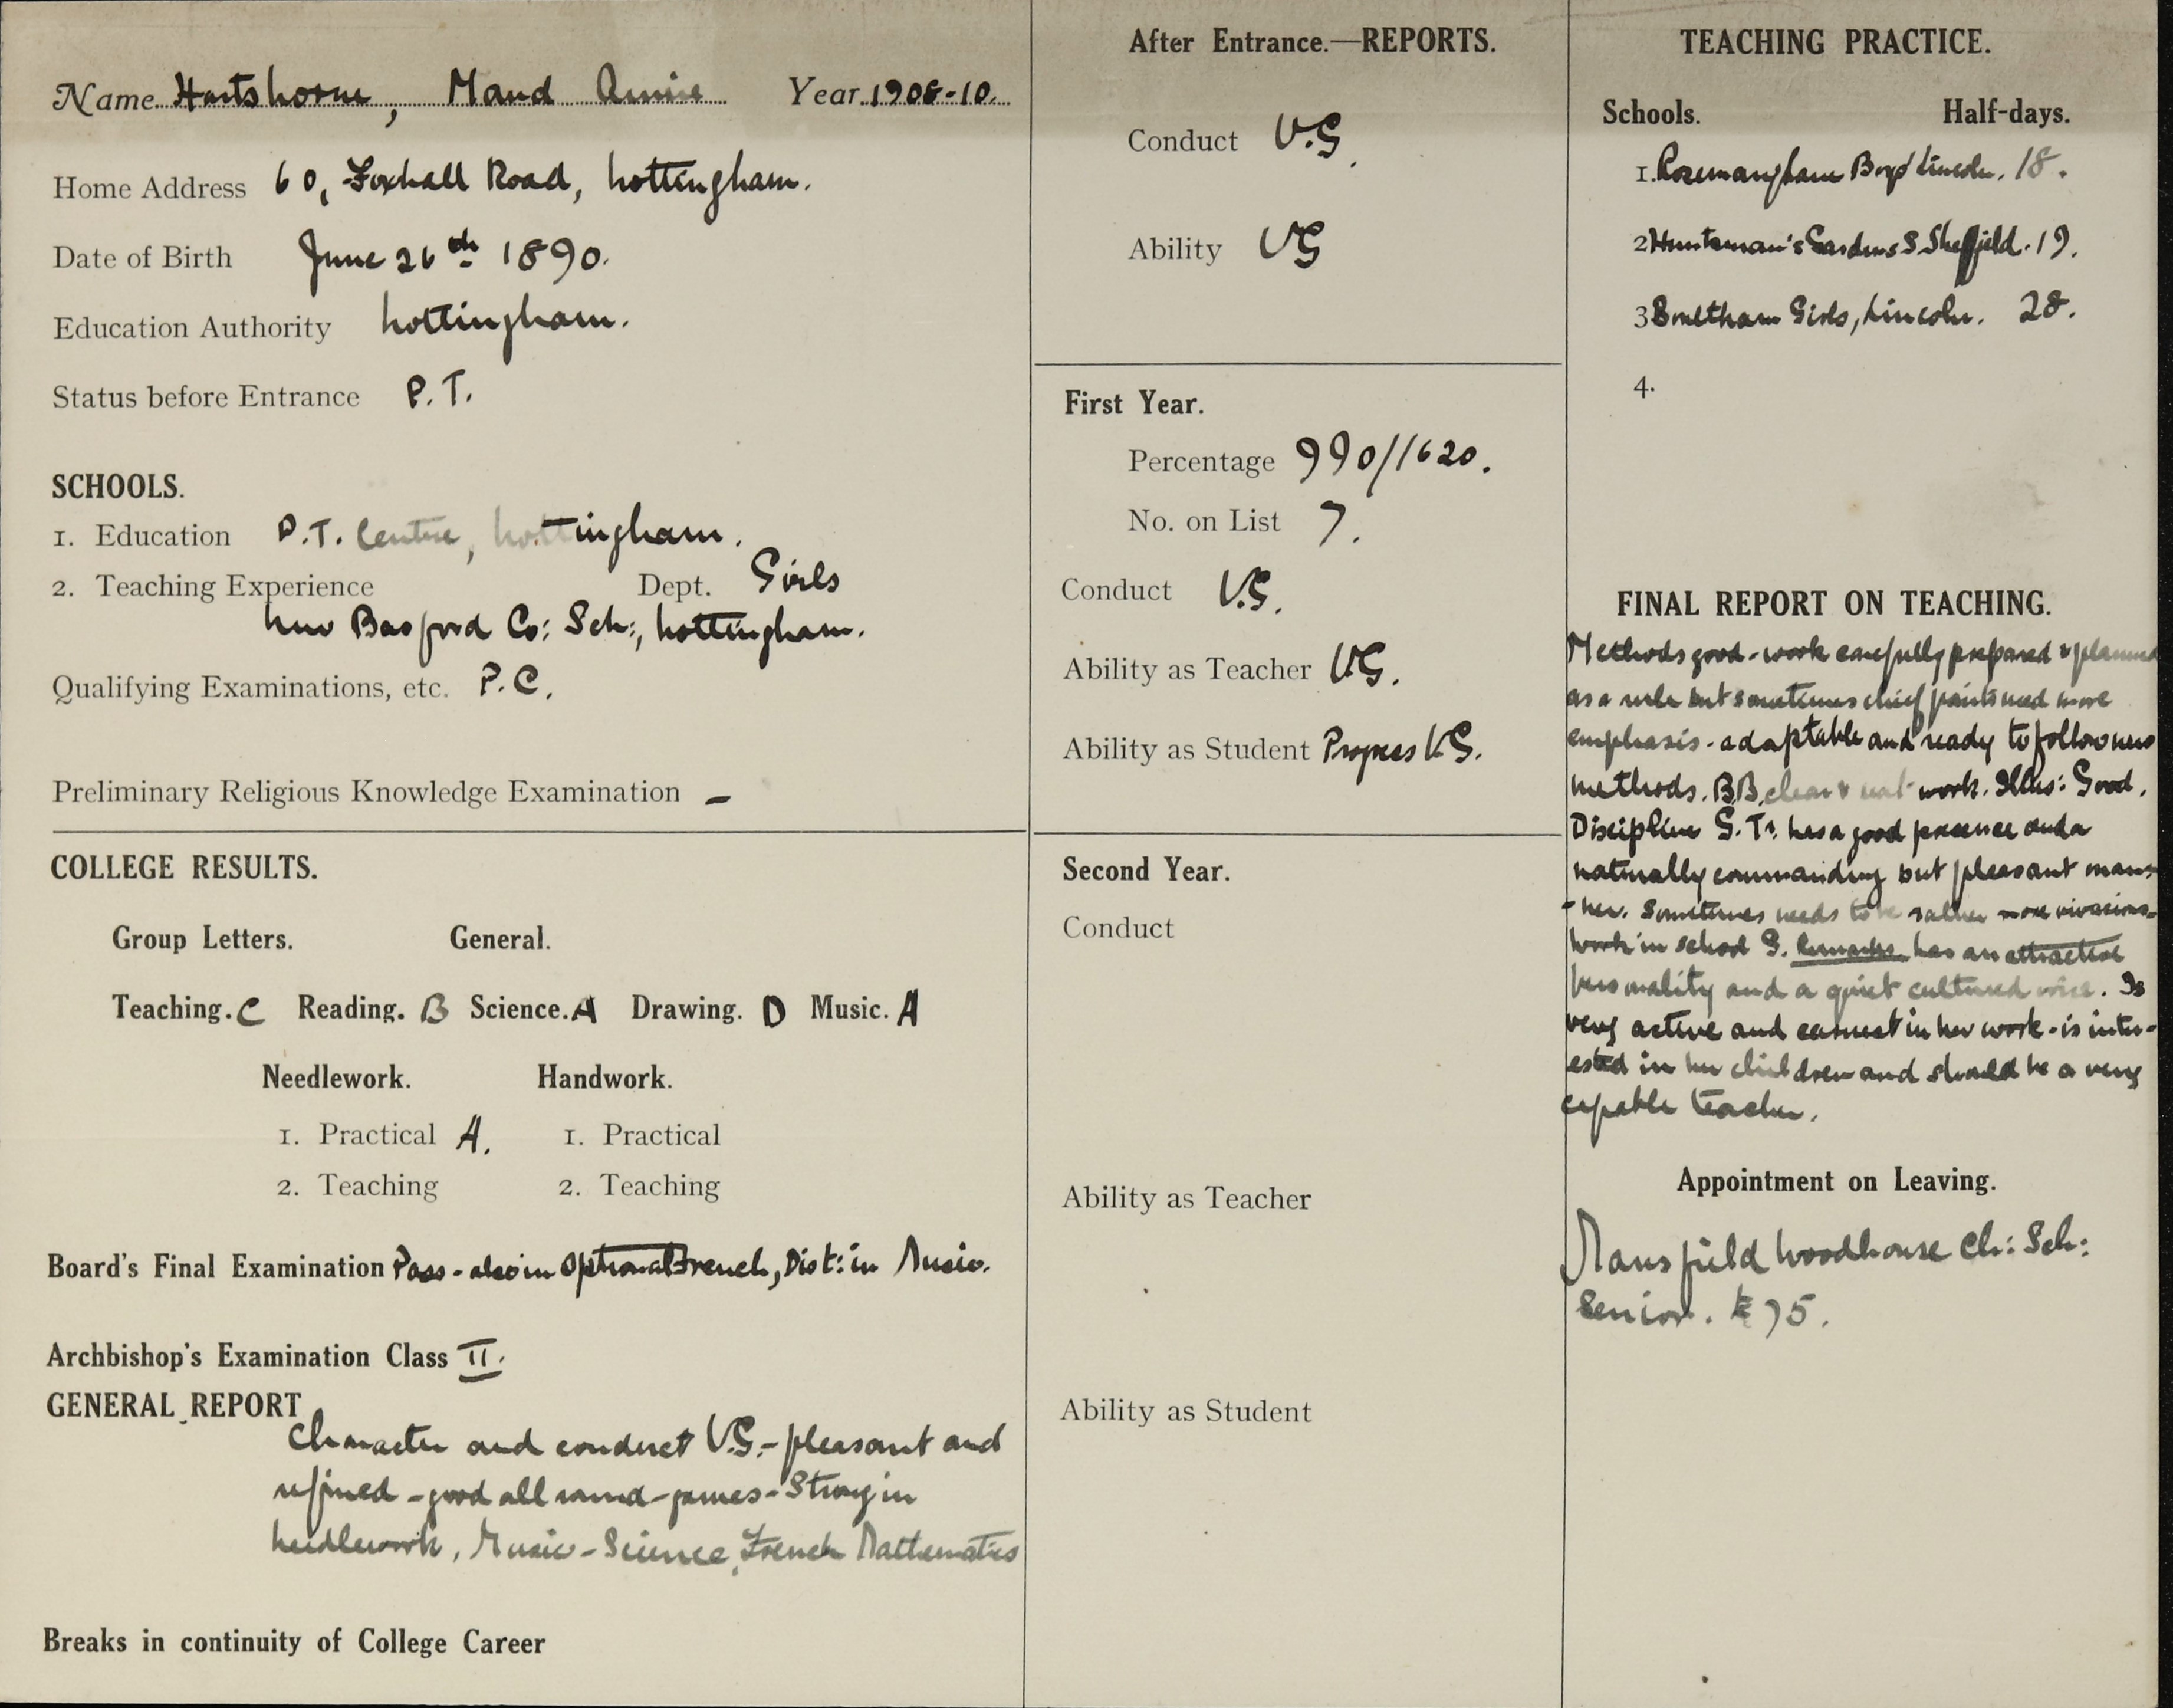 Name Hartshorne, Maud Annie Year 1908-10.
Home Address 60, Foxhall Road, Nottingham.
Date of Birth June 26th 1890.
Education Authority Nottingham.
Status before Entrance P.T.
SCHOOLS.
1. Education P.T. Centre, Nottingham.
2. Teaching Experience Dept. Girls
New Basford Co: Sch:, Nottingham.
Qualifying Examinations, etc. P.C.
Preliminary Religious Knowledge Examination –
COLLEGE RESULTS.
Group Letters. General.
Teaching. C Reading. B Science. A Drawing. D Music. A
Needlework. Handwork.
1. Practical A. 1. Practical
2. Teaching 2. Teaching
Board's Final Examination Pass - also in Optional French, Dist: in Music.
Archbishop's Examination Class II.
GENERAL REPORT
Character and conduct V.G. - pleasant and
refined - good all round - games - Strong in
Needlework, Music - Science, French Mathematics
Breaks in continuity of College Career
After Entrance.—REPORTS.
Conduct V.G.
Ability VG
First Year.
Percentage 990/1620.
No. on List 7.
Conduct V.G.
Ability as Teacher V.G.
Ability as Student Progress V.G.
Second Year.
Conduct
Ability as Teacher
Ability as Student
TEACHING PRACTICE.
Schools. Half-days.
1. Boys' Lincoln. 18.
2 Huntsman's Gardens S. Sheffield. 19.
3 Boultham Girls, Lincoln. 28.
4.
FINAL REPORT ON TEACHING.
Methods good - work carefully prepared & planned
as a rule but sometimes chief points need more
emphasis - adaptable and ready to follow new
methods. B.B. clear & neat work. Illus: Good.
Discipline G. Tr. has a good presence and a
naturally commanding but pleasant man-
-ner. Sometimes needs to be rather more vivacious -
work in school G. Remarks has an attractive
personality and a quiet cultured voice. Is
very active and earnest in her work - is inter-
ested in her children and should be a very
capable teacher.
Appointment on Leaving.
Mansfield Woodhouse Ch: Sch:
Senior. £75.